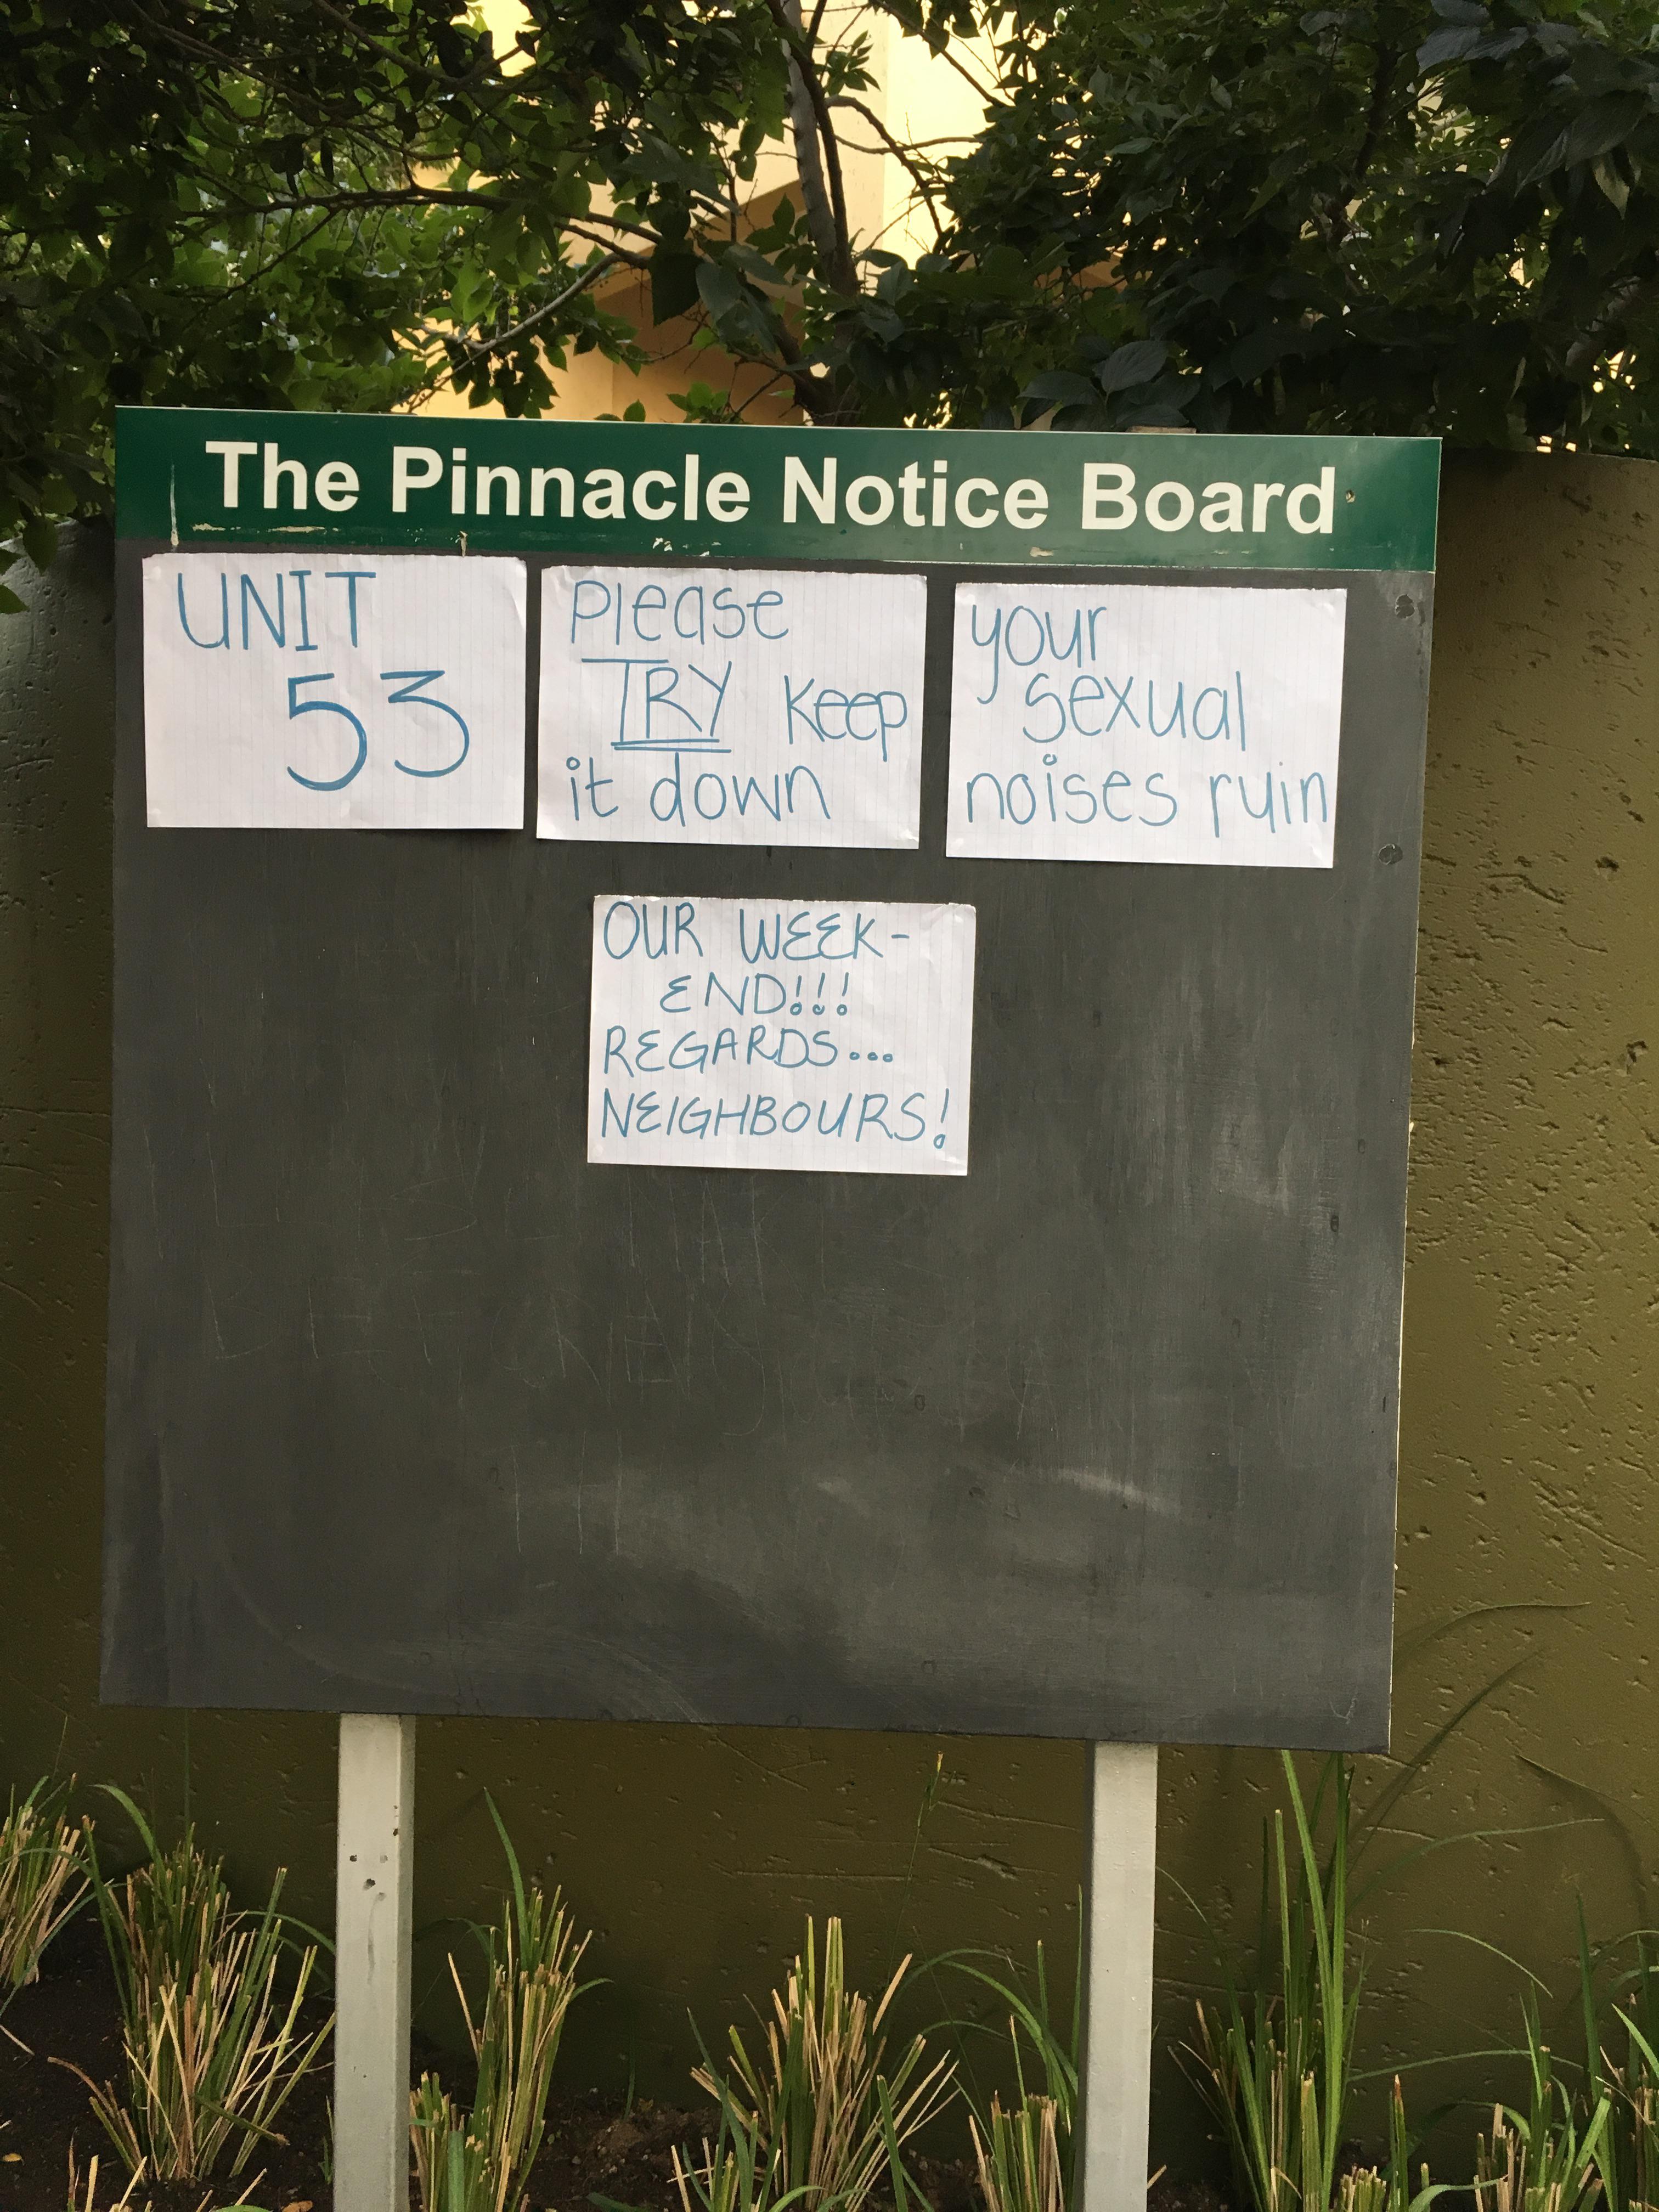 The Pinnacle Notice Board
UNIT
53
Please
TRY Keep
it down
your
sexual
noises ruin
OUR WEEK-
END!!!
REGARDS...
NEIGHBOURS!